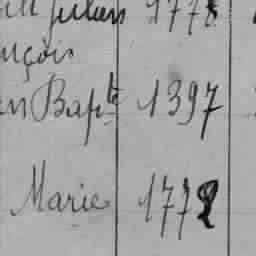 Julien 1778
nçois
n Bapte 1397
Marie 1772